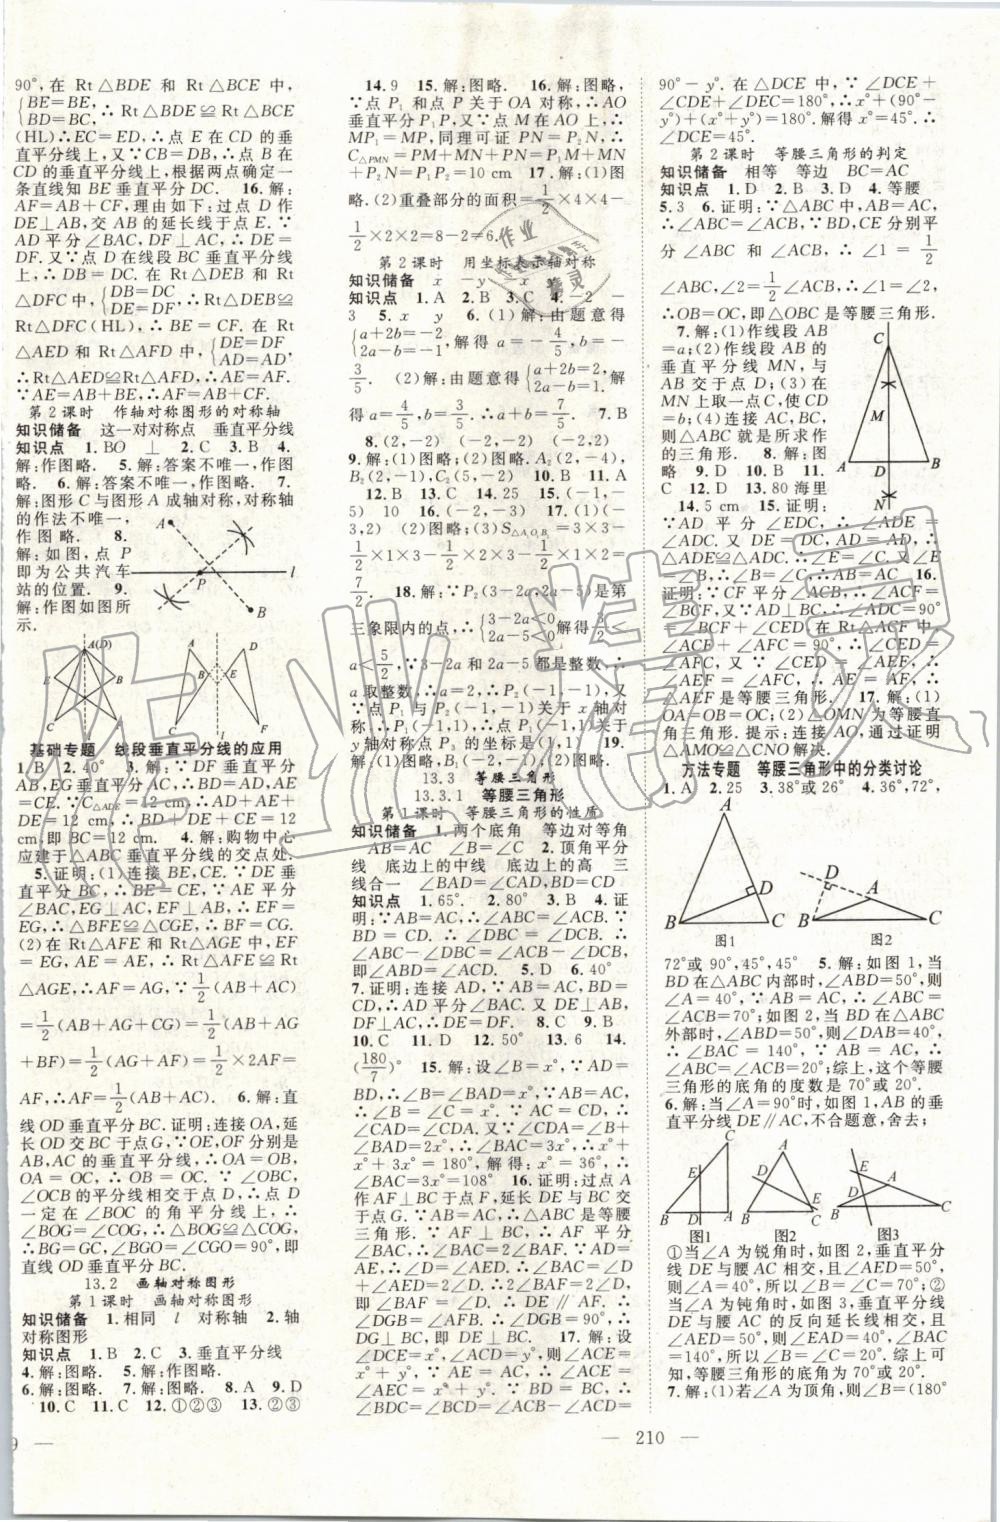 90°,在 Rt△BDE 和 Rt△BCE 中,
{BE=BE, BD=BC, ∴Rt△BDE≌Rt△BCE
(HL)∴EC=ED,∴点 E 在 CD 的垂
直平分线上,又∵CB=DB,∴点 B 在
CD的垂直平分线上,根据两点确定一
条直线知 BE 垂直平分 DC. 16.解:
AF=AB+CF,理由如下:过点 D 作
DE⊥AB,交 AB 的延长线于点 E.∵
AD 平分∠BAC,DF⊥AC,∴DE=
DF.又∵点 D 在 BC 的垂直平分线
上,∴BD=DC.在 Rt△DEB 和 Rt
△DFC 中,{DB=DC DE=DF,∴Rt△DEB≌
Rt△DFC(HL),∴BE=CF.在 Rt
△AED 和 Rt△AFD 中,{DE=DF AD=AD,
∴Rt△AED≌Rt△AFD,∴AE=AF.
∵AE=AB+BE=AB+CF,
∴AF=AB+CF.
第2课时 作轴对称图形的对称轴
知识储备 这一对对称点 垂直平分线
知识点 1.BO ⊥ 2.C 3.B 4.
解:作图略. 5.解:答案不唯一,作图
略. 6.解:答案不唯一,作图略. 7.
解:图形 C 与图形 A 成轴对称,对称轴
的作法不唯一,
作图略. 8.
解:如图,点 P
即为公共汽车
站的位置. 9.
解:作图如图所
示.
A P l B
A(D) E B C F l
A D B E C F l
基础专题 线段垂直平分线的应用
1.B 2.40° 3.解:∵DF 垂直平分
AB,EG 垂直平分 AC,∴BD=AD,AE
=CE.∵C△ADE=12 cm,∴AD+AE+
DE=12 cm,∴BD+DE+CE=12
cm,即 BC=12 cm. 4.解:购物中心
应建于△ABC垂直平分线的交点处.
5.证明:(1)连接 BE,CE.∵DE 垂直
平分 BC,∴BE=EC.∵AE 平分
∠BAC,EG⊥AC,EF⊥AB,∴EF=
EG,∴△BFE≌△CGE,∴BF=CG.
(2)在 Rt△AFE 和 Rt△AGE 中,EF
=EG,AE=AE,∴Rt△AFE≌Rt
△AGE,∴AF=AG,∵1/2(AB+AC)
=1/2(AB+AG+CG)=1/2(AB+AG
+BF)=1/2(AG+AF)=1/2×2AF=
AF,∴AF=1/2(AB+AC) 6.解:直
线 OD 垂直平分 BC.证明:连接OA,延
长 OD 交BC 于点 G.∵OE,OF 分别是
AB,AC 的垂直平分线,∴OA=OB,
OA=OC,∴OB=OC. ∵∠OBC,
∠OCB的平分线相交于点 D,∴点 D
一定在∠BOC 的角平分线上,∴
∠BOG=∠COG,∴△BOG≌△COG,
∴BG=CG,∠BGO=∠CGO=90°,即
直线 OD 垂直平分 BC.
13.2 画轴对称图形
第1课时 画轴对称图形
知识储备 1.相同 l 对称轴 2.轴
对称图形
知识点 1.B 2.C 3.垂直平分线
4.解:图略. 5.解:作图略.
6.解:图略. 7.解:图略. 8.A 9.D
10.C 11.C 12.①②③ 13.②③
9
14.9 15.解:图略. 16.解:图略.
∵点 P₁ 和点 P 关于 OA 对称,∴AO
垂直平分 P₁P,又∵点 M 在 AO 上,∴
MP₁=MP,同理可证 PN=P₂N,∴
C△PMN=PM+MN+PN=P₁M+MN
+P₂N=P₁P₂=10 cm 17.解:(1)图
略.(2)重叠部分的面积=1/2×4×4-
1/2×2×2=8-2=6.
第2课时 用坐标表示轴对称
知识储备 x -y -x y
知识点 1.A 2.B 3.C 4.-2 -
3 5.x y 6.(1)解:由题意得
{a+2b=-2, 2a-b=-1,解得 a=-4/5,b=-
3/5. (2)解:由题意得{a+2b=2, 2a-b=1,解
得 a=4/5,b=3/5.∴a+b=7/5 7.B
8.(2,-2) (-2,-2) (-2,2)
9.解:(1)图略;(2)图略.A₂(2,-4),
B₂(1,-2),C₂(5,-2) 10.B 11.A
12.B 13.C 14.25 15.(-1,-
5) 10 16.(-2,0) 17.(1)(-
3,2) (2)图略;(3)S△A₁O₁B₁=3×3-
1/2×1×3-1/2×2×3-1/2×1×2=
7/2. 18.解:∵P₂(3-2a,2a-5)是第
三象限内的点,∴{3-2a<0 2a-5<0解得3/2<
a<5/2,∵3-2a 和 2a-5 都是整数,∴
a 取整数,∴a=2,∴P₂(-1,-1),又
∵点 P₁ 与点 P₂ 关于 x 轴对
称,∴P₁(-1,1),∴点 P₁(-1,1)关于
y 轴对称点 P₃ 的坐标是(1,1). 19.
解:(1)B (2)B (3)B
13.3 等腰三角形
13.3.1 等腰三角形
第1课时 等腰三角形的性质
知识储备 1.两个底角 等边对等角
AB=AC ∠B=∠C 2.顶角平分
线 底边上的中线 底边上的高 三
线合一 ∠BAD=∠CAD,BD=CD
知识点 1.65° 2.80° 3.B 4.证
明:∵AB=AC,∴∠ABC=∠ACB.∵
BD=CD.∴∠DBC=∠DCB,∴
∠ABC-∠DBC=∠ACB-∠DCB,
即∠ABD=∠ACD. 5.D 6.40°
7.证明:连接 AD,∵AB=AC,BD=
CD,∴AD 平分∠BAC.又 DE⊥AB,
DF⊥AC,∴DE=DF. 8.C 9.B
10.C 11.D 12.50° 13.6 14.
(180/7)° 15.解:设∠B=x°,∵AD=
BD,∴∠B=∠BAD=x°,∵AB=AC,
∴∠B=∠C=x°.∵AC=CD,∴
∠CAD=∠CDA=∠B+∠BAD=
2x°,∴∠BAC=3x°,∴x°+
x°+3x°=180°,解得:x°=36°,∴
∠BAC=3x°=108° 16.证明:过点 A
作 AF⊥BC 于点 F,延长 DE 交 BC 于
点 G.∵AB=AC,∴△ABC 是等腰三
角形,∴AF 平分∠BAC,∴∠BAC=
2∠BAF.又 AD=AE,∴∠BAC=∠D
+∠AED=2∠D,∴2∠D=
2∠BAF,∴∠D=∠BAF,∴DE∥AF,∴
∠DGB=∠AFB,∵∠DGB=90°,∴
DG⊥BC,即 DE⊥BC. 17.解:设
∠DCE=x°,∠ACD=y°,则∠ACE=
x°+y°,∵AE=AC,∴∠ACE=
∠AEC=x°+y°.∵BD=BC,∴
∠BDC=∠BCD=∠BCA-∠ACD=
90°-y°.在△DCE 中,∵∠DCE+
∠CDE+∠DEC=180°,∴x°+(90°-
y°)+(x°+y°)=180°.解得 x°=45°.∴
∠DCE=45°.
第2课时 等腰三角形的判定
知识储备 相等 等边 BC=AC
知识点 1.D 2.B 3.D 4.等腰
5.3 6.证明:∵△ABC 中,AB=AC,
∴∠ABC=∠ACB,∵BD,CE 分别平
分∠ABC 和∠ACB,∴∠1=1/2
∠ABC,∠2=1/2∠ACB,∴∠1=∠2,
∴OB=OC,即△OBC 是等腰三角形.
7.解:(1)作线段 AB
=a;(2)作线段 AB 的
垂直平分线 MN,与
AB 交于点 D;(3)在
MN 上取一点 C,使 CD
=b;(4)连接 AC,BC,
则△ABC 就是所求作
的三角形. 8.解:图
略 9.D 10.B 11.
C 12.D 13.80 海里
14.5 cm 15.证明:
C M A D B N
∵AD 平分∠EDC,∴∠ADE=
∠ADC.又 DE=DC,AD=AD,∴
△ADE≌△ADC.∴∠E=∠C.又∠E
=∠B,∴∠B=∠C,∴AB=AC 16.
证明:∵CF 平分∠ACB,∴∠ACF=
∠BCF.又∵∠B+∠ADC=90°
∠BCF+∠CFD=90°,在 Rt△ACF中,
∠ACF+∠AFC=90°.∴∠CED=
∠AFC.又∵∠CED=∠AEF,∴
∠AEF=∠AFE,∴AE=AF,∴
△AEF 是等腰三角形. 17.解:(1)
OA=OB=OC;(2)△OMN 为等腰直
角三角形.提示:连接 AO,通过证明
△AMO≌△CNO 解决.
方法专题 等腰三角形中的分类讨论
1.A 2.25 3.38°或26° 4.36°,72°,
A D B C 图1
D A B C 图2
72°或 90°,45°,45° 5.解:如图 1,当
BD 在△ABC 内部时,∠ABD=50°,则
∠A=40°,∵AB=AC,∴∠ABC=
∠ACB=70°;如图 2,当 BD 在△ABC
外部时,∠ABD=50°,则∠DAB=40°,
∴∠BAC=140°,∵AB=AC,∴
∠ABC=∠ACB=20°;综上,这个等腰
三角形的底角的度数是 70°或 20°.
6.解:当∠A=90°时,如图 1,AB 的垂
直平分线 DE∥AC,不合题意,舍去;
A E B D C 图1
A E D B C 图2
E A D B C 图3
①当∠A 为锐角时,如图 2,垂直平分
线 DE 与腰 AC 相交,∠AED=50°,
则∠A=40°,所以∠B=∠C=70°;②
当∠A 为钝角时,如图 3,垂直平分线
DE 与腰 AC 的反向延长线相交,
∠AED=50°,则∠EAD=40°,∠BAC
=140°,所以∠B=∠C=20°.综上可
知,等腰三角形的底角的度数为70°或20°.
7.解:(1)若∠A 为顶角,则∠B=(180°
210
作业精灵